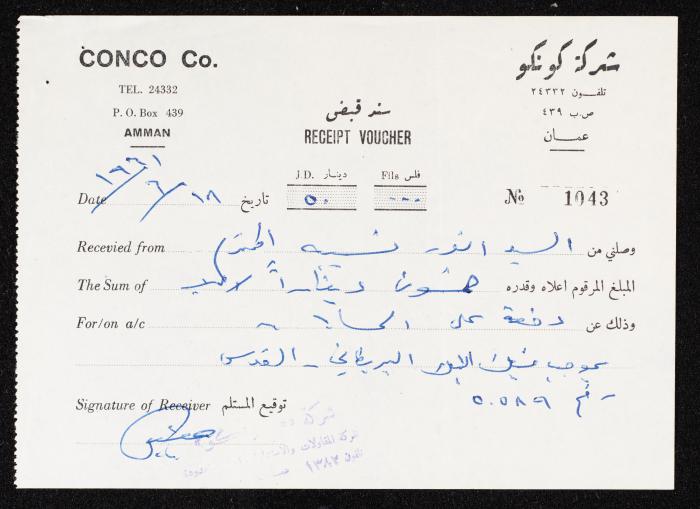 CONCO Co.
TEL. 24332
P. O. Box 439
AMMAN
شركة كونكو
تلفون ٢٤٣٣٢
ص.ب ٤٣٩
عمان
سند قبض
RECEIPT VOUCHER
J.D. دينار Fils فلس
٥٠ ---
Date ١٩٦١/٦/١٨ تاريخ
No 1043
Recevied from السيد انور نسيبه المحترم وصلني من
The Sum of خمسون ديناراً لا غير المبلغ المرقوم اعلاه وقدره
For/on a/c دفعة على الحساب وذلك عن
بموجب شيك البنك البريطاني - القدس
رقم ٥٠٥٨٩
Signature of Receiver توقيع المستلم
شركة
شركة المقاولات
تلفون ١٣٨٣